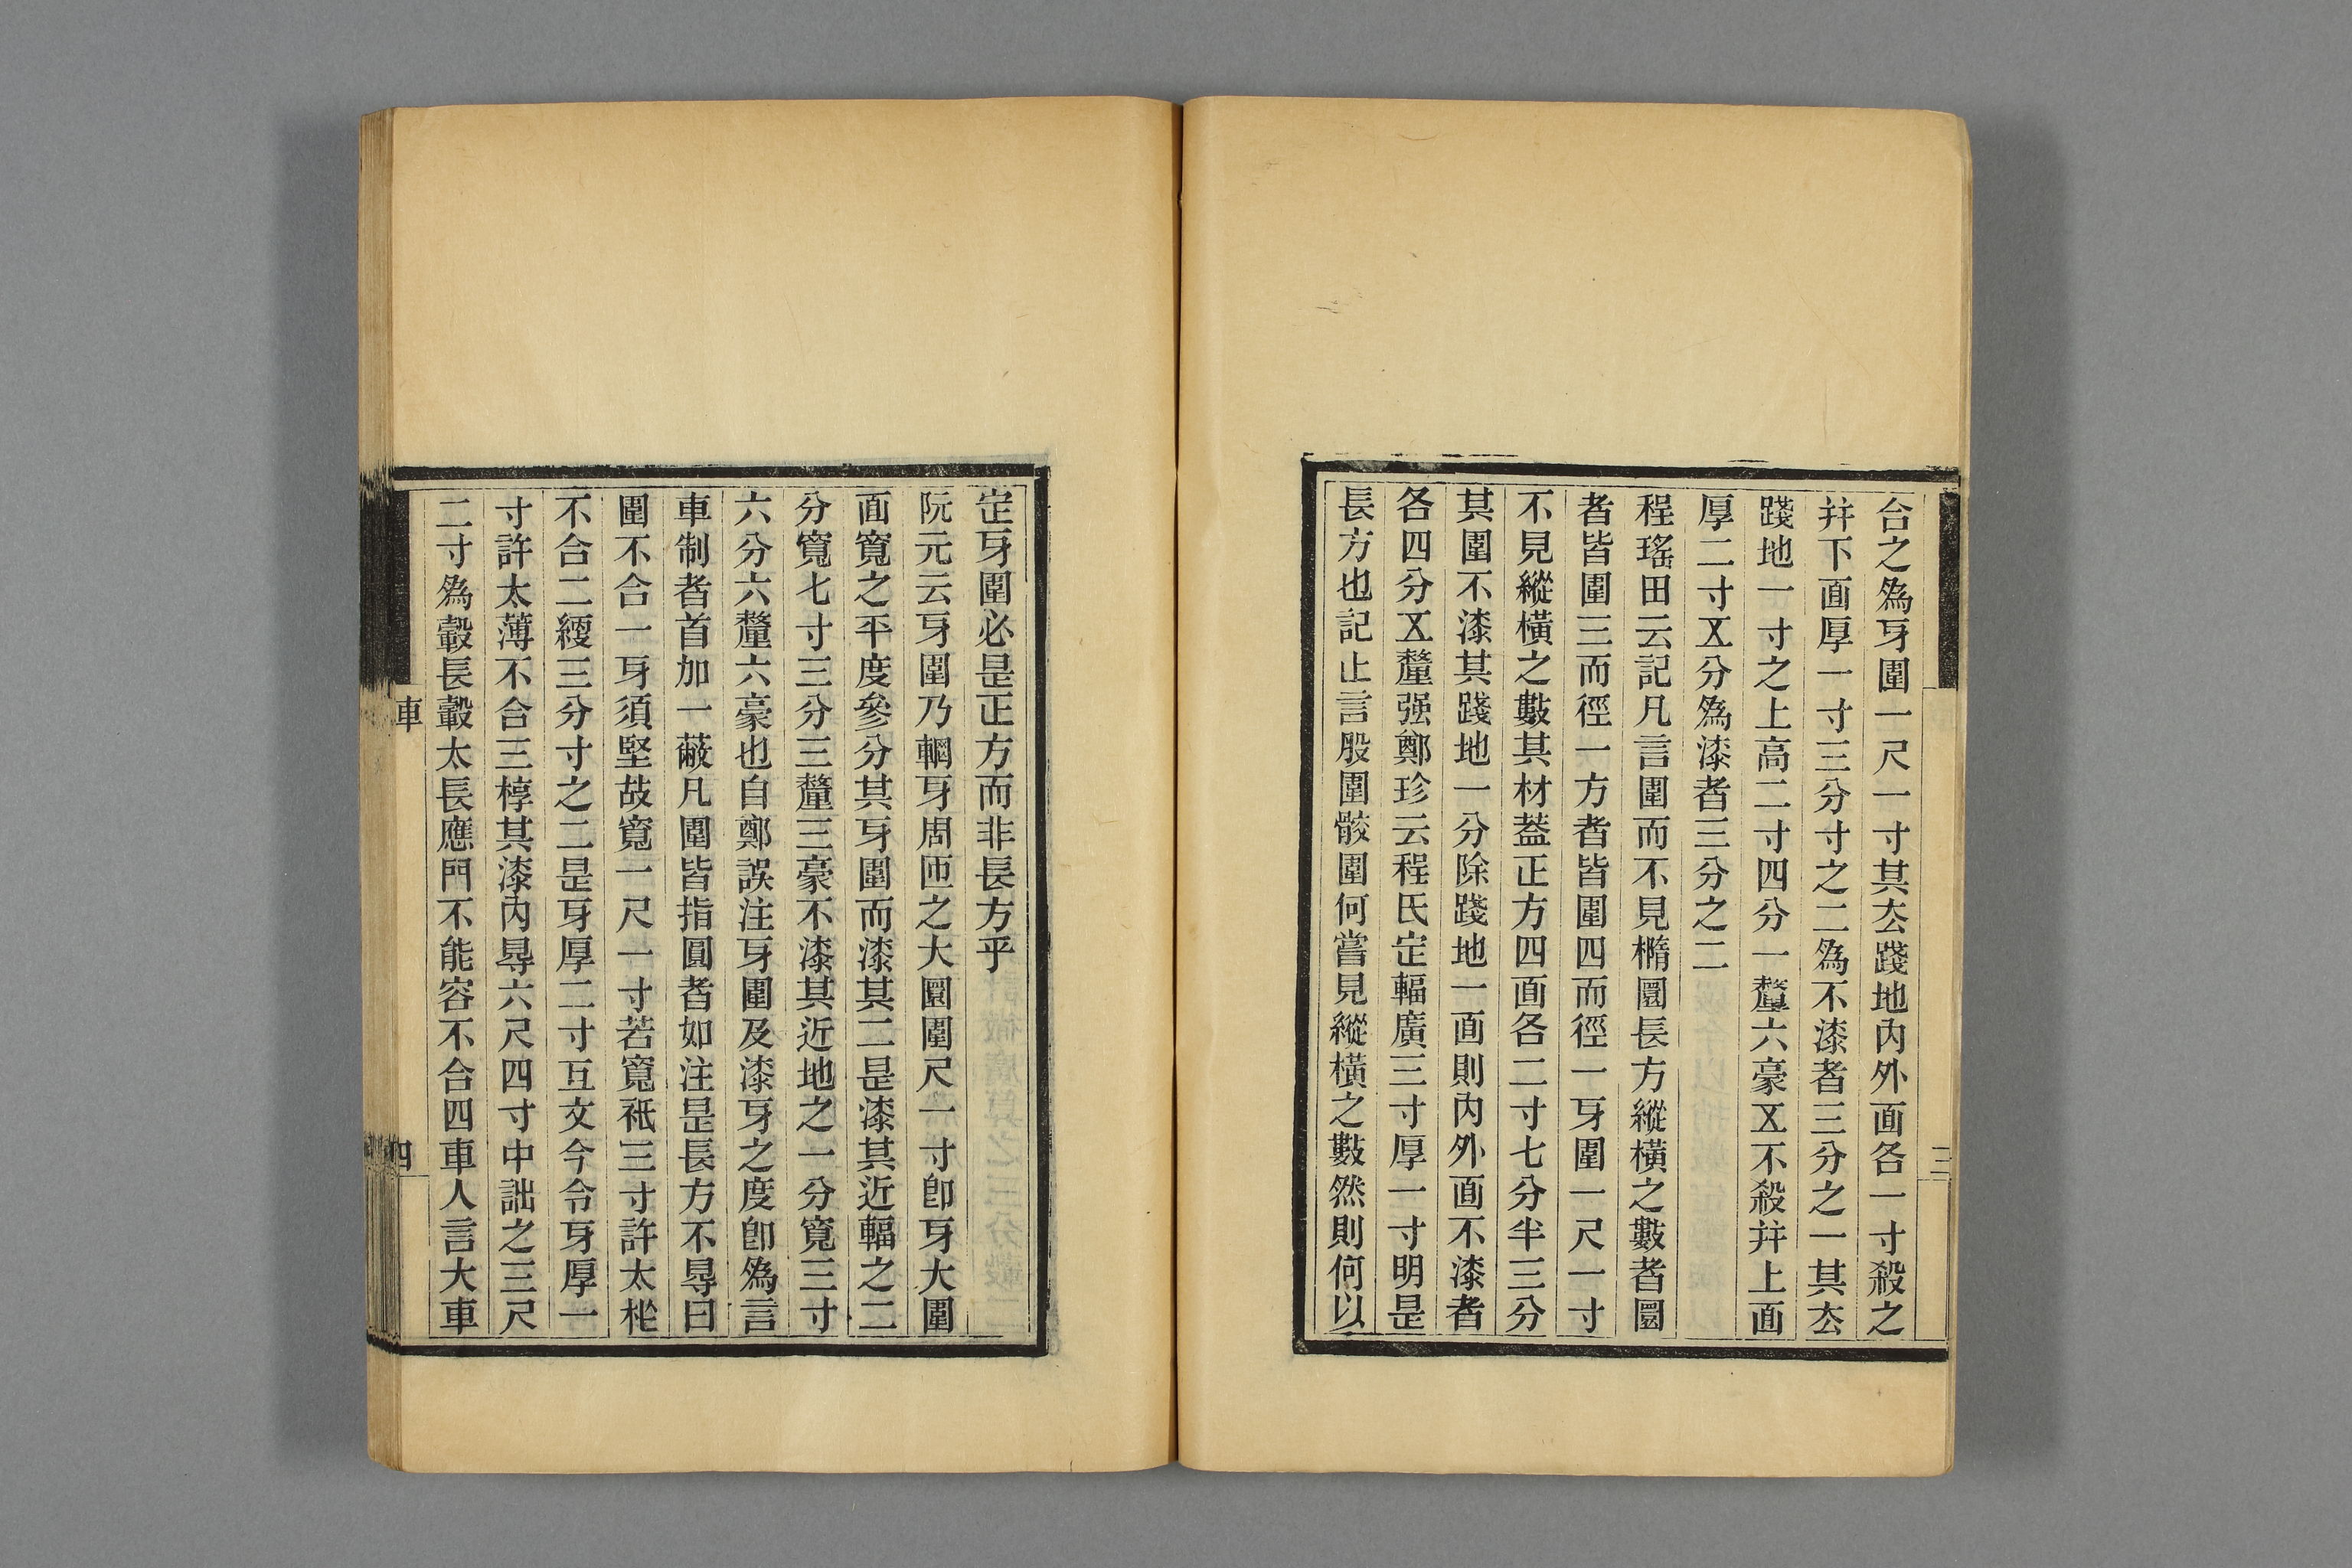 三
合之爲牙圍一尺一寸其厺踐地內外面各一寸殺之
幷下面厚一寸三分寸之二爲不漆者三分之一其厺
踐地一寸之上高二寸四分一釐六豪㐅不殺幷上面
厚二寸㐅分爲漆者三分之二
程瑤田云記凡言圍而不見橢圜長方縱橫之數者圜
者皆圍三而徑一方者皆圍四而徑一牙圍一尺一寸
不見縱橫之數其材葢正方四面各二寸七分半三分
其圍不漆其踐地一分除踐地一面則內外面不漆者
各四分㐅釐强鄭珍云程氏定輻廣三寸厚一寸明是
長方也記止言股圍骹圍何嘗見縱橫之數然則何以
定牙圍必是正方而非長方乎
阮元云牙圍乃輞牙周匝之大圜圍尺一寸卽牙大圍
面寬之平度參分其牙圍而漆其二是漆其近輻之二
分寬七寸三分三釐三豪不漆其近地之一分寬三寸
六分六釐六豪也自鄭誤注牙圍及漆牙之度卽爲言
車制者首加一蔽凡圍皆指圓者如注是長方不㝵曰
圍不合一牙須堅故寬一尺一寸若寬祇三寸許太枇
不合二綆三分寸之二是牙厚二寸互文今令牙厚一
寸許太薄不合三椁其漆內㝵六尺四寸中詘之三尺
二寸爲轂長轂太長應門不能容不合四車人言大車
車
四